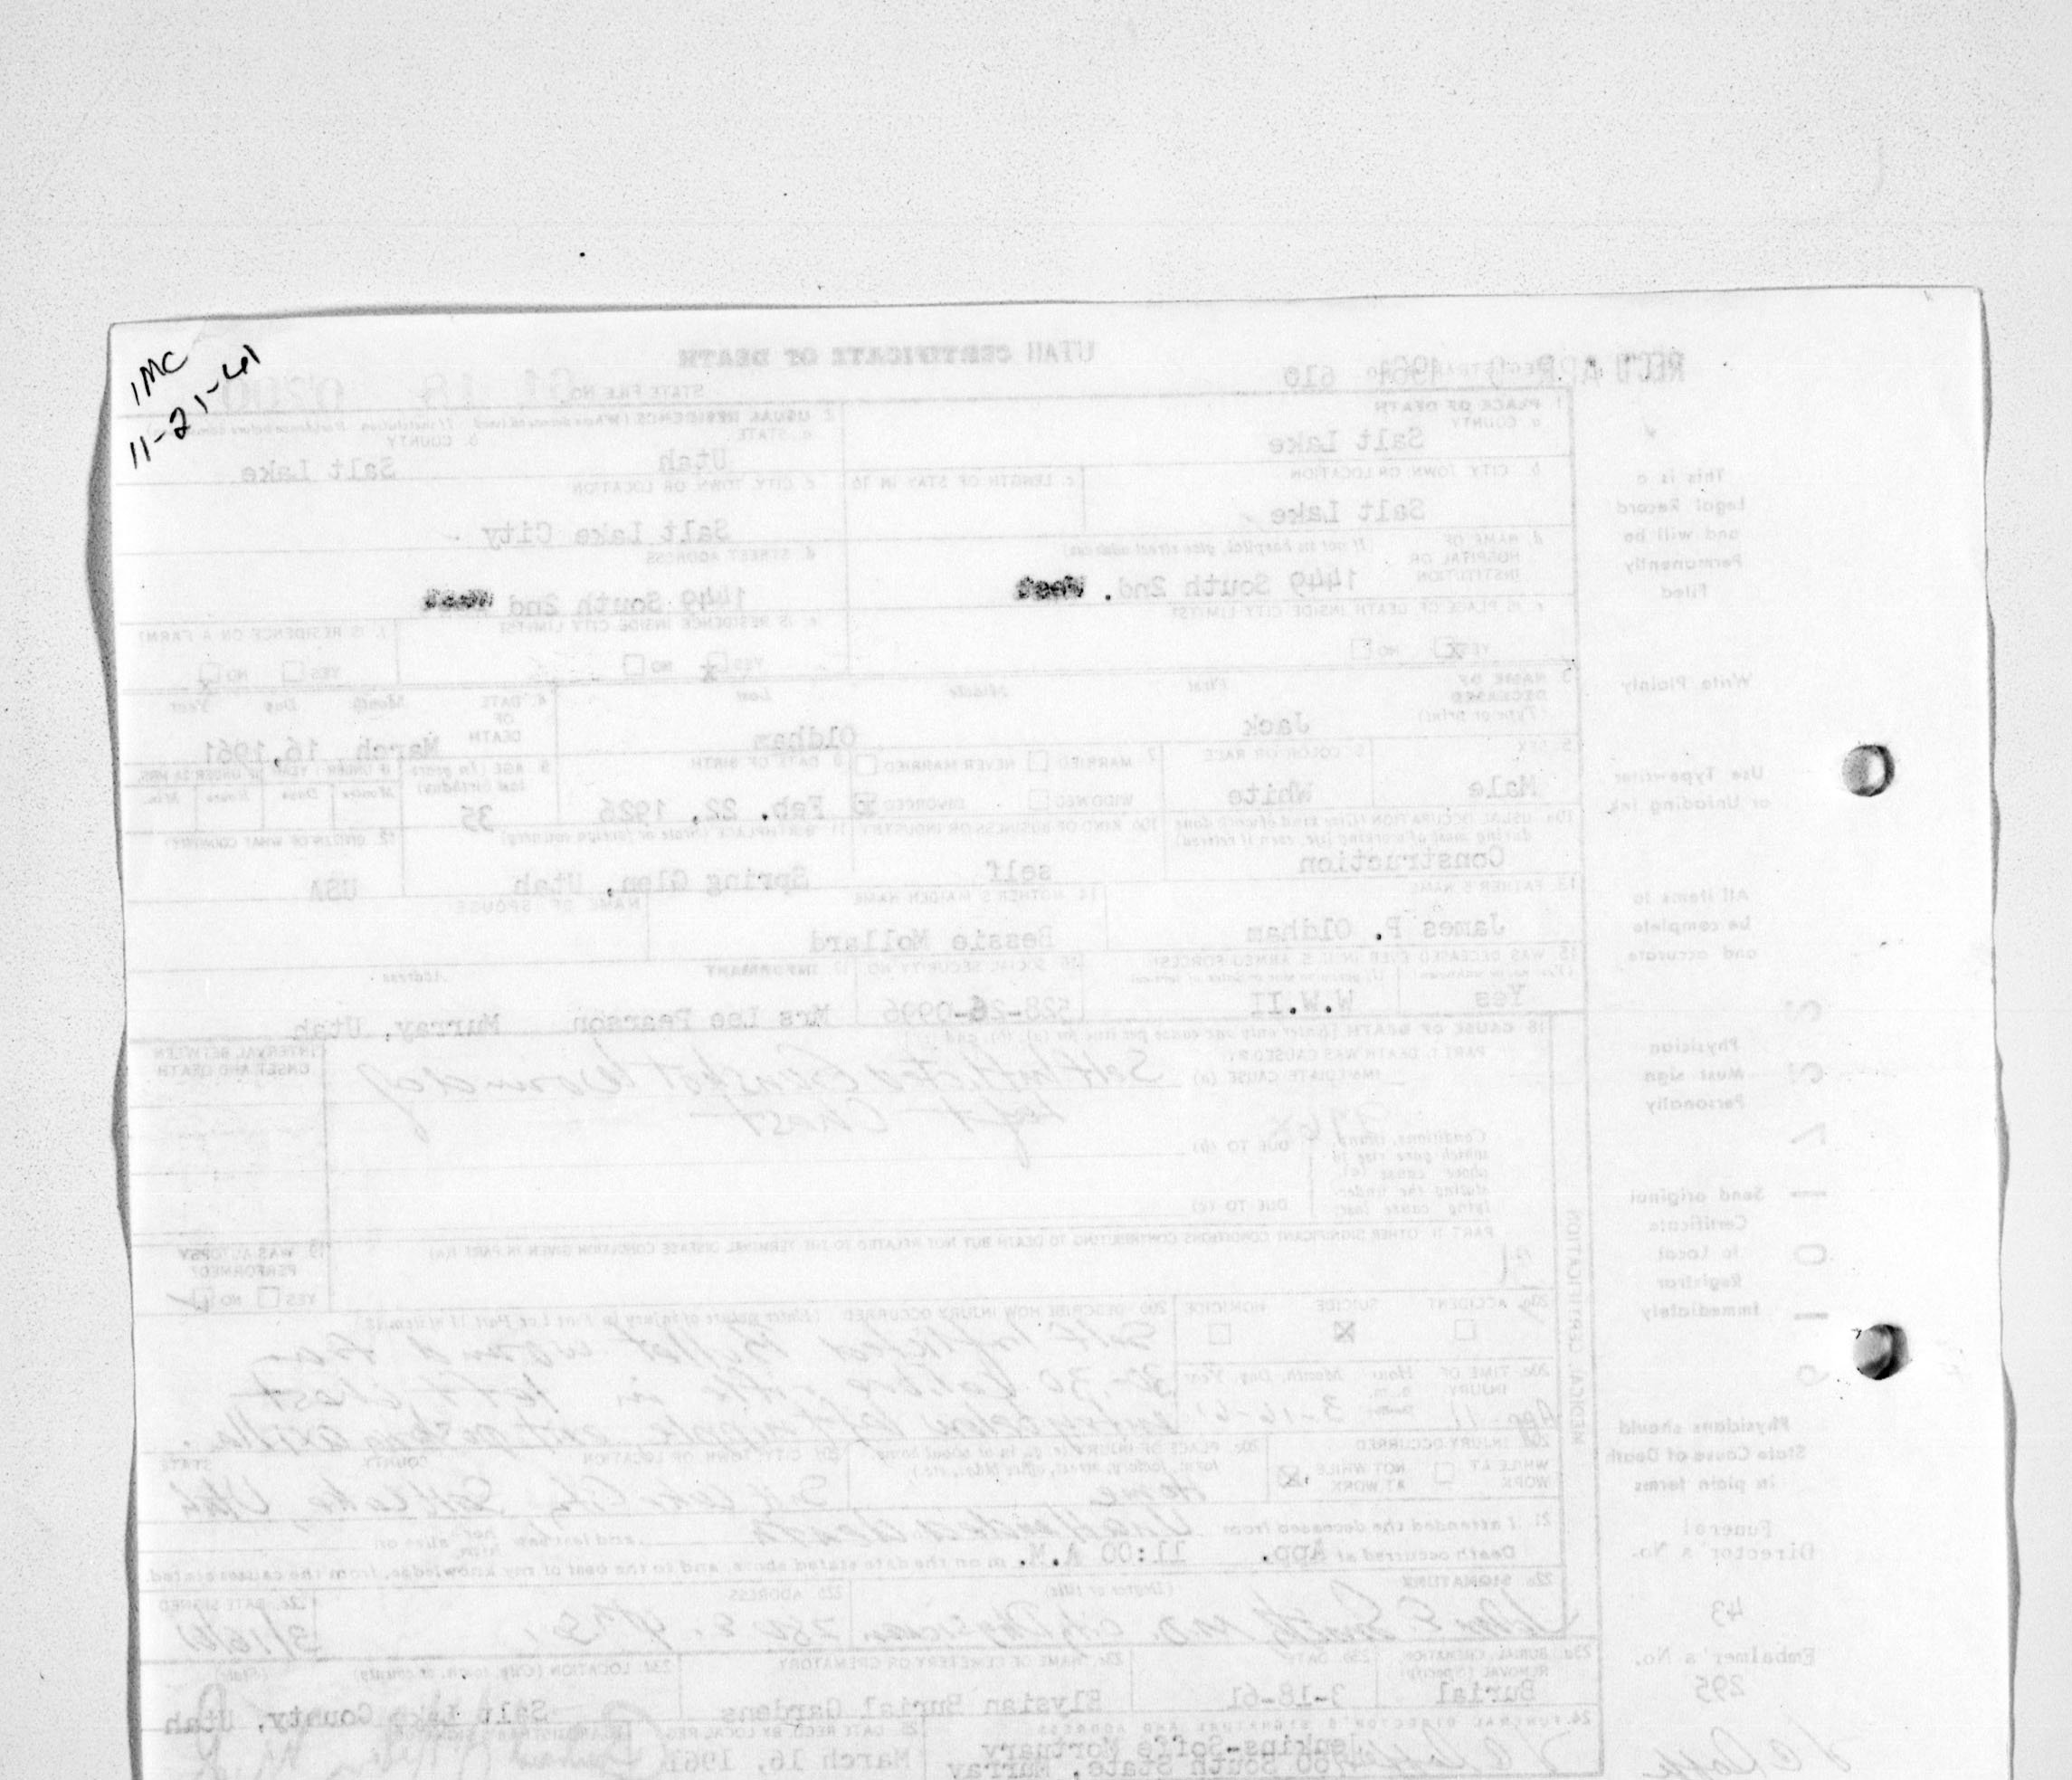 IMC
11-21-61
UTAH CERTIFICATE OF DEATH
REC'D APR 1961
610
STATE FILE NO.
1. PLACE OF DEATH
a. COUNTY
Salt Lake
b. CITY, TOWN, OR LOCATION
c. LENGTH OF STAY IN 1b
Salt Lake
d. NAME OF HOSPITAL OR INSTITUTION
(If not in hospital, give street address)
1449 South 2nd. West
e. IS PLACE OF DEATH INSIDE CITY LIMITS?
YES NO
2. USUAL RESIDENCE
a. STATE
Utah
b. COUNTY
Salt Lake
c. CITY, TOWN, OR LOCATION
Salt Lake City
d. STREET ADDRESS
1449 South 2nd West
e. IS RESIDENCE INSIDE CITY LIMITS?
YES NO
f. IS RESIDENCE ON A FARM?
YES NO
3. NAME OF DECEASED
(Type or print)
First Middle Last
Jack Oldham
4. DATE OF DEATH
Month Day Year
March 16, 1961
5. SEX
Male
6. COLOR OR RACE
White
7. MARRIED NEVER MARRIED
WIDOWED DIVORCED
8. DATE OF BIRTH
Feb. 22, 1926
9. AGE (In years last birthday)
35
IF UNDER 1 YEAR IF UNDER 24 HRS.
Months Days Hours Min.
10a. USUAL OCCUPATION (Give kind of work done during most of working life, even if retired)
Construction
10b. KIND OF BUSINESS OR INDUSTRY
self
11. BIRTHPLACE (State or foreign country)
Spring Glen, Utah
12. CITIZEN OF WHAT COUNTRY?
USA
13. FATHER'S NAME
James P. Oldham
14. MOTHER'S MAIDEN NAME
Bessie Mollard
NAME OF SPOUSE
15. WAS DECEASED EVER IN U. S. ARMED FORCES?
Yes W.W.II
16. SOCIAL SECURITY NO.
528-26-0996
17. INFORMANT Address
Mrs Lee Pearson Murray, Utah
18. CAUSE OF DEATH [Enter only one cause per line for (a), (b), and (c)]
PART I. DEATH WAS CAUSED BY:
IMMEDIATE CAUSE (a)
Self Inflicted Gunshot Wound of
left Chest
INTERVAL BETWEEN ONSET AND DEATH
Conditions, if any, which gave rise to above cause (a), stating the underlying cause last.
DUE TO (b)
DUE TO (c)
PART II. OTHER SIGNIFICANT CONDITIONS CONTRIBUTING TO DEATH BUT NOT RELATED TO THE TERMINAL DISEASE CONDITION GIVEN IN PART I(a)
19. WAS AUTOPSY PERFORMED?
YES NO
MEDICAL CERTIFICATION
20a. ACCIDENT SUICIDE HOMICIDE
20b. DESCRIBE HOW INJURY OCCURRED
Self inflicted bullet wound from
30-30 Calibre rifle in left chest
entry below left nipple exit post axilla.
20c. TIME OF INJURY
Hour Month, Day, Year
App. 11 3-16-61
20d. INJURY OCCURRED
WHILE AT WORK NOT WHILE AT WORK
20e. PLACE OF INJURY
Home
20f. CITY, TOWN, OR LOCATION COUNTY STATE
Salt Lake City, Salt Lake, Utah
21. I attended the deceased from Unattended death and last saw her him alive on
Death occurred at App. 11:00 A.M. m on the date stated above, and to the best of my knowledge, from the causes stated.
22a. SIGNATURE (Degree or title)
M.D. City Physician
22b. ADDRESS
22c. DATE SIGNED
3/16/61
23a. BURIAL, CREMATION, REMOVAL (Specify)
Burial
23b. DATE
3-18-61
23c. NAME OF CEMETERY OR CREMATORY
Elysian Burial Gardens
23d. LOCATION (City, town, or county) (State)
Salt Lake County, Utah
24. FUNERAL DIRECTOR'S SIGNATURE AND ADDRESS
Jenkins-Soffe Mortuary
4760 South State, Murray
25. DATE REC'D BY LOCAL REG.
March 16, 1961
This is a
Legal Record
and will be
Permanently
Filed
Write Plainly
Use Typewriter
or Unfading ink
All items to
be complete
and accurate
Physician
Must sign
Personally
Send original
Certificate
to Local
Registrar
Immediately
Physicians should
State Cause of Death
in plain terms
Funeral
Director's No.
43
Embalmer's No.
295